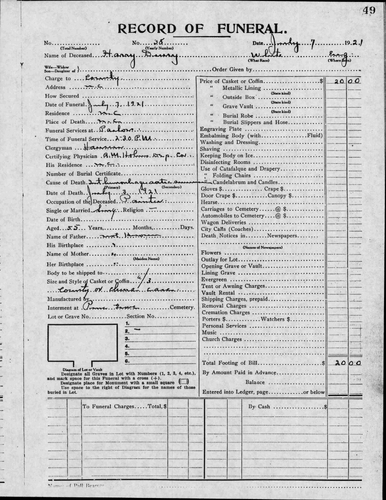 49
RECORD OF FUNERAL.
No. No. 25 Date July 7 1921
(Total Number) (Yearly Number)
Name of Deceased Harry White Eng.
(What Race) (Where Born)
Wife—Widow
Son—Daughter of Order Given by
Charge to County
Address M.C.
How Secured
Date of Funeral July 7, 1921
Residence M.C.
Place of Death M.C.
Funeral Services at Parlors
Time of Funeral Service 2:30 P.M.
Clergyman
Certifying Physician A.M. Co.
His Residence M.C.
Number of Burial Certificate
Cause of Death
Date of Death July 1921
Occupation of the Deceased Painter
Single or Married Sing Religion
Date of Birth
Aged 55 Years Months, Days.
Name of Father not known
His Birthplace "
Name of Mother "
Her Birthplace "
Body to be shipped to
Size and Style of Casket or Coffin 6/3
County case
Manufactured by
Interment at Cemetery.
Lot or Grave No. Section No.
1
2
3
4
5
6
Diagram of Lot or Vault
Designate all Graves in Lot with Numbers (1, 2, 3, 4, etc.), and mark space for this Funeral with a cross (+).
Designate place for Monument with a small square
Use space to the right of Diagram for names of those buried in Lot.
Price of Casket or Coffin 20 00
" Metallic Lining
" Outside Box
(State kind)
" Grave Vault
(State kind)
" Burial Robe
(State kind)
" Burial Slippers and Hose
Engraving Plate
Embalming Body (with Fluid)
Washing and Dressing
Shaving
Keeping Body on Ice
Disinfecting Rooms
Use of Catafalque and Drapery
" Folding Chairs
" Candelabrum and Candles
Gloves $ Crape $
Door Crape $ Canopy $
Hearse
Carriages to Cemetery @ $
Automobiles to Cemetery @ $
Wagon Deliveries
City Calls (Coaches)
Death Notices in Newspapers
(Names of Newspapers)
Flowers
Outlay for Lot
Opening Grave or Vault
Lining Grave
Evergreen
Tent or Awning Charges
Vault Rental
Shipping Charges, prepaid
Removal Charges
Cremation Charges
Porters $ Watchers $
Personal Services
Music
Church Charges
Total Footing of Bill 20 00
By Amount Paid in Advance
Balance
Entered into Ledger, page or below
To Funeral Charges By Cash